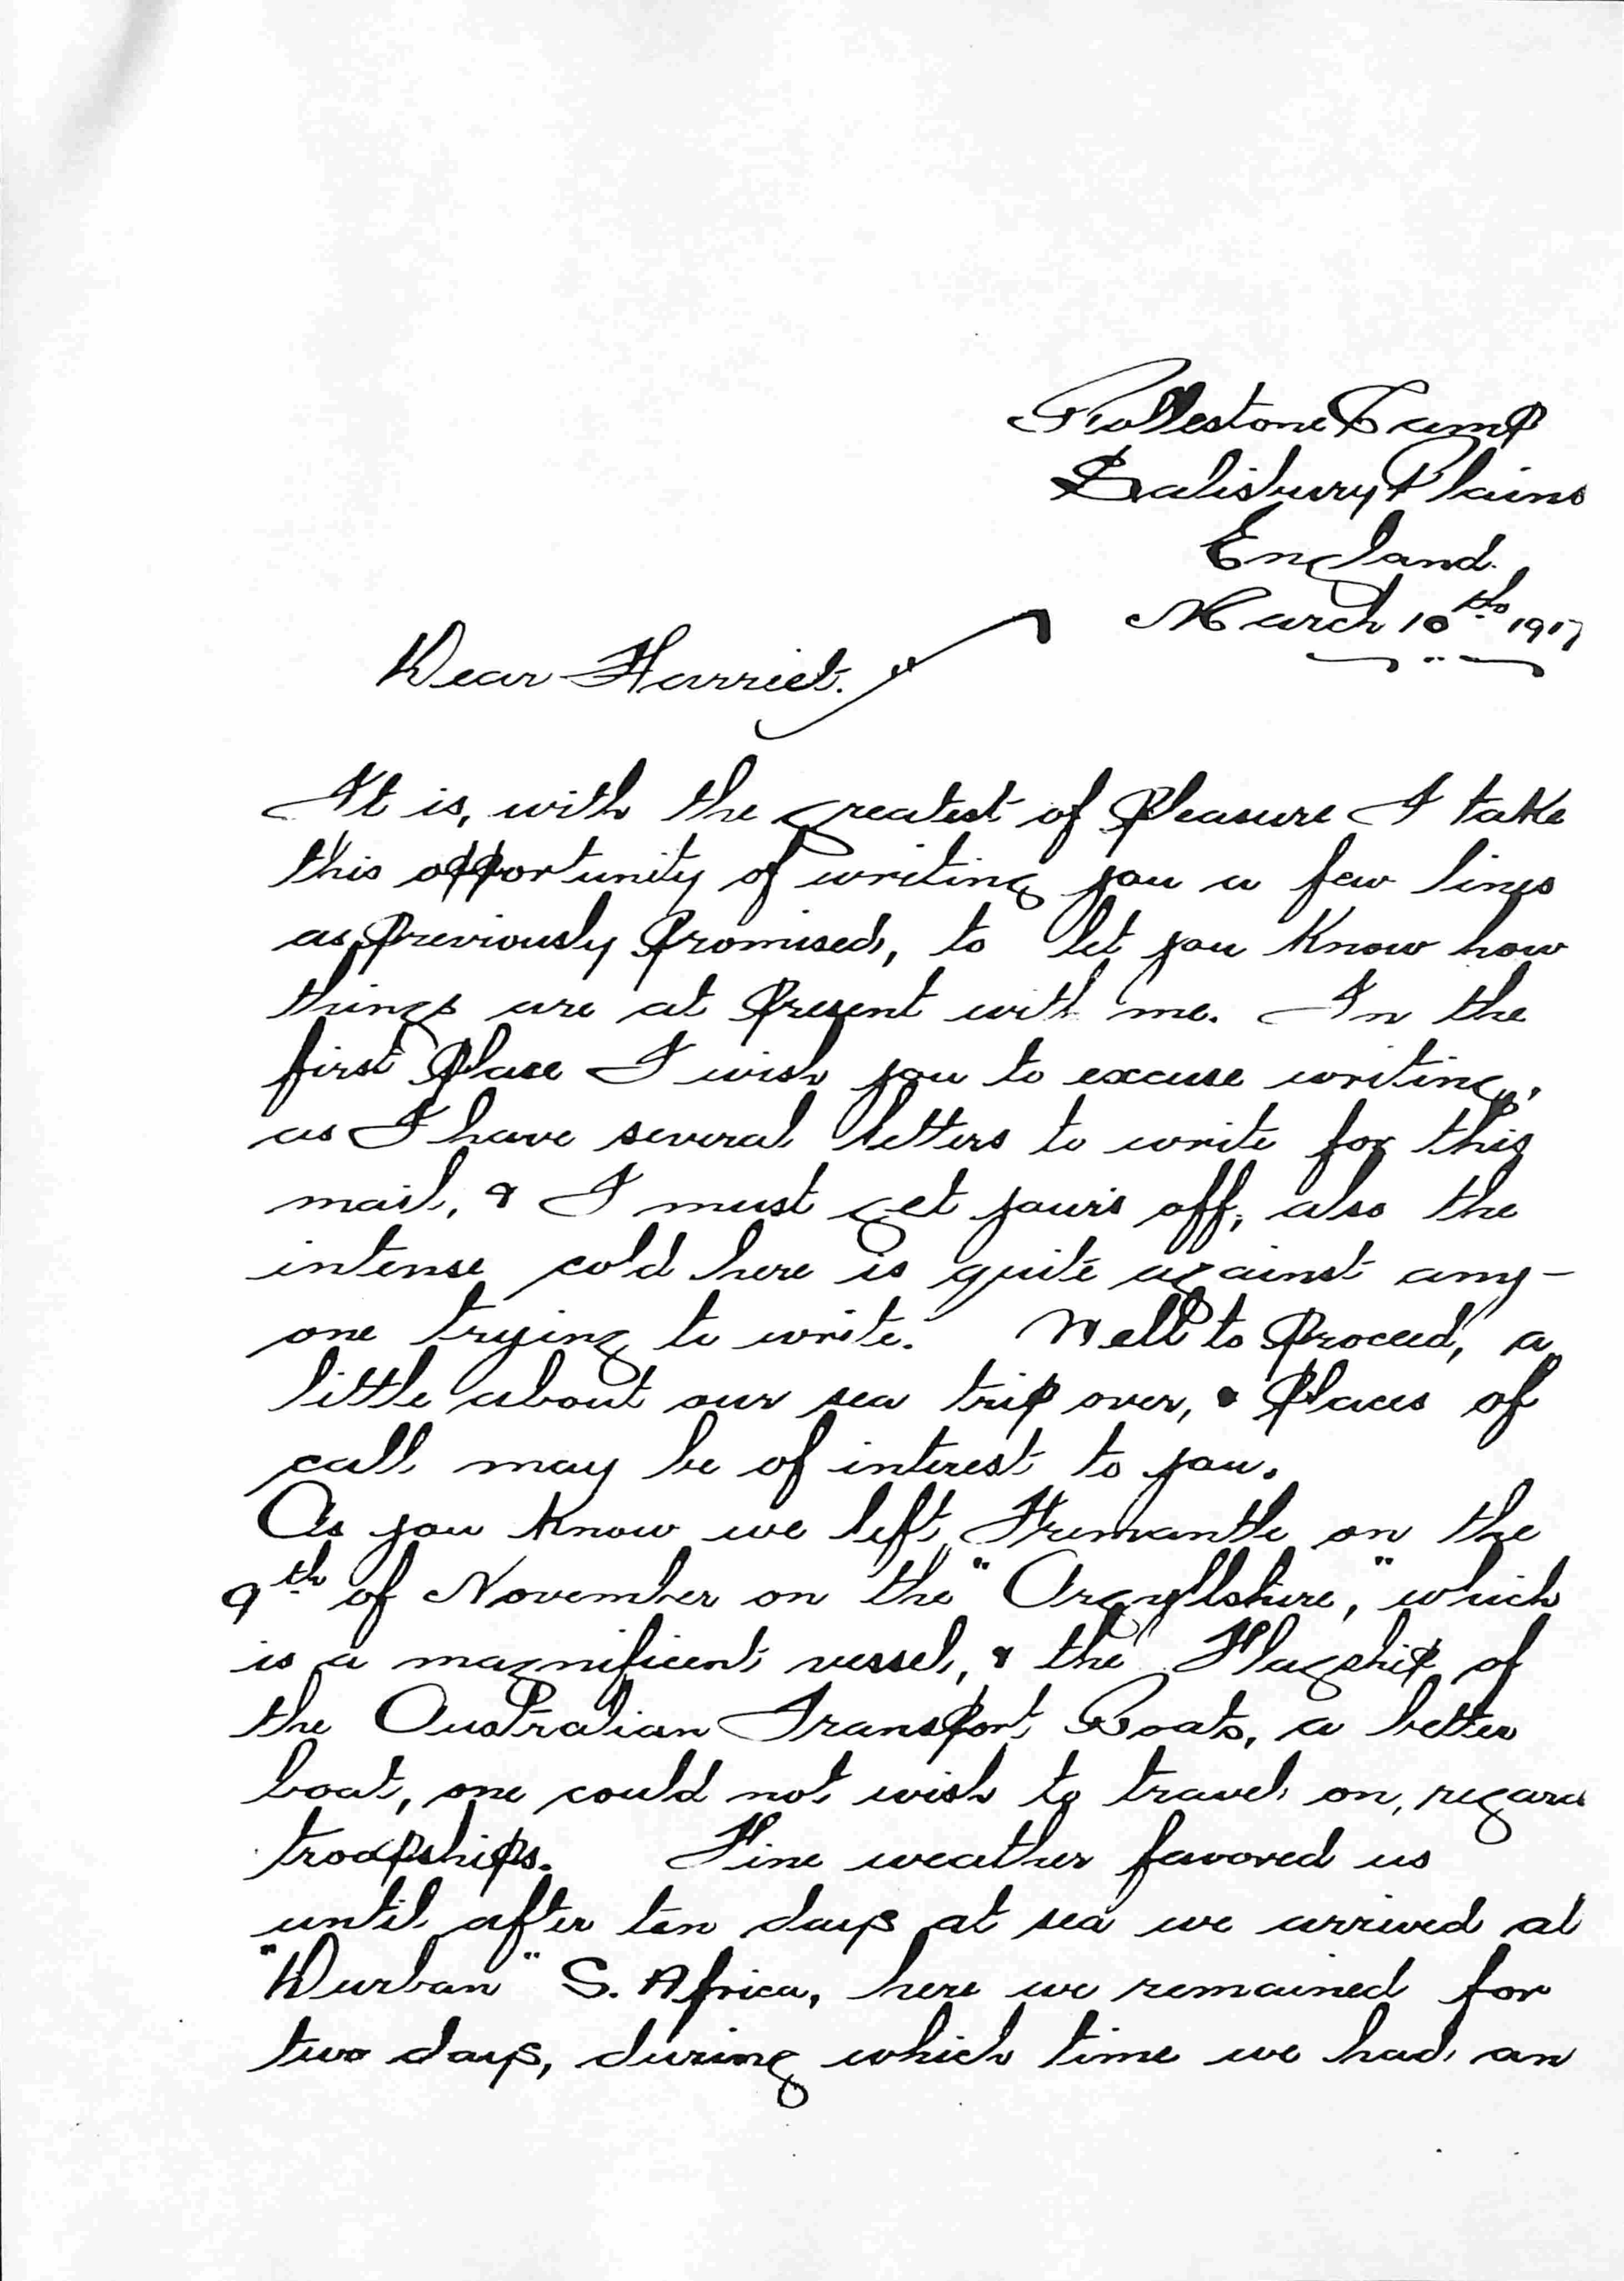 Rollestone Camp
Salisbury Plains
England.
March 10th 1917
Dear Harriet.
It is, with the greatest of Pleasure I take
this opportunity of writing you a few lines
as Previously Promised, to let you Know how
things are at Present with me. In the
first Place I wish you to excuse writing,
as I have several letters to write for this
mail, & I must get your's off, also the
intense cold here is quite against any-
one trying to write. Well to Proceed, a
little about our sea trip over, & Places of
call may be of interest to you.
As you Know we left Fremantle on the
9th of November on the "Argyllshire," which
is a magnificent vessel, & the Flagship of
the Australian Transport Boats, a better
boat, one could not wish to travel on, regard
troopships. Fine weather favored us
until after ten days at sea we arrived at
"Durban" S. Africa, here we remained for
two days, during which time we had an